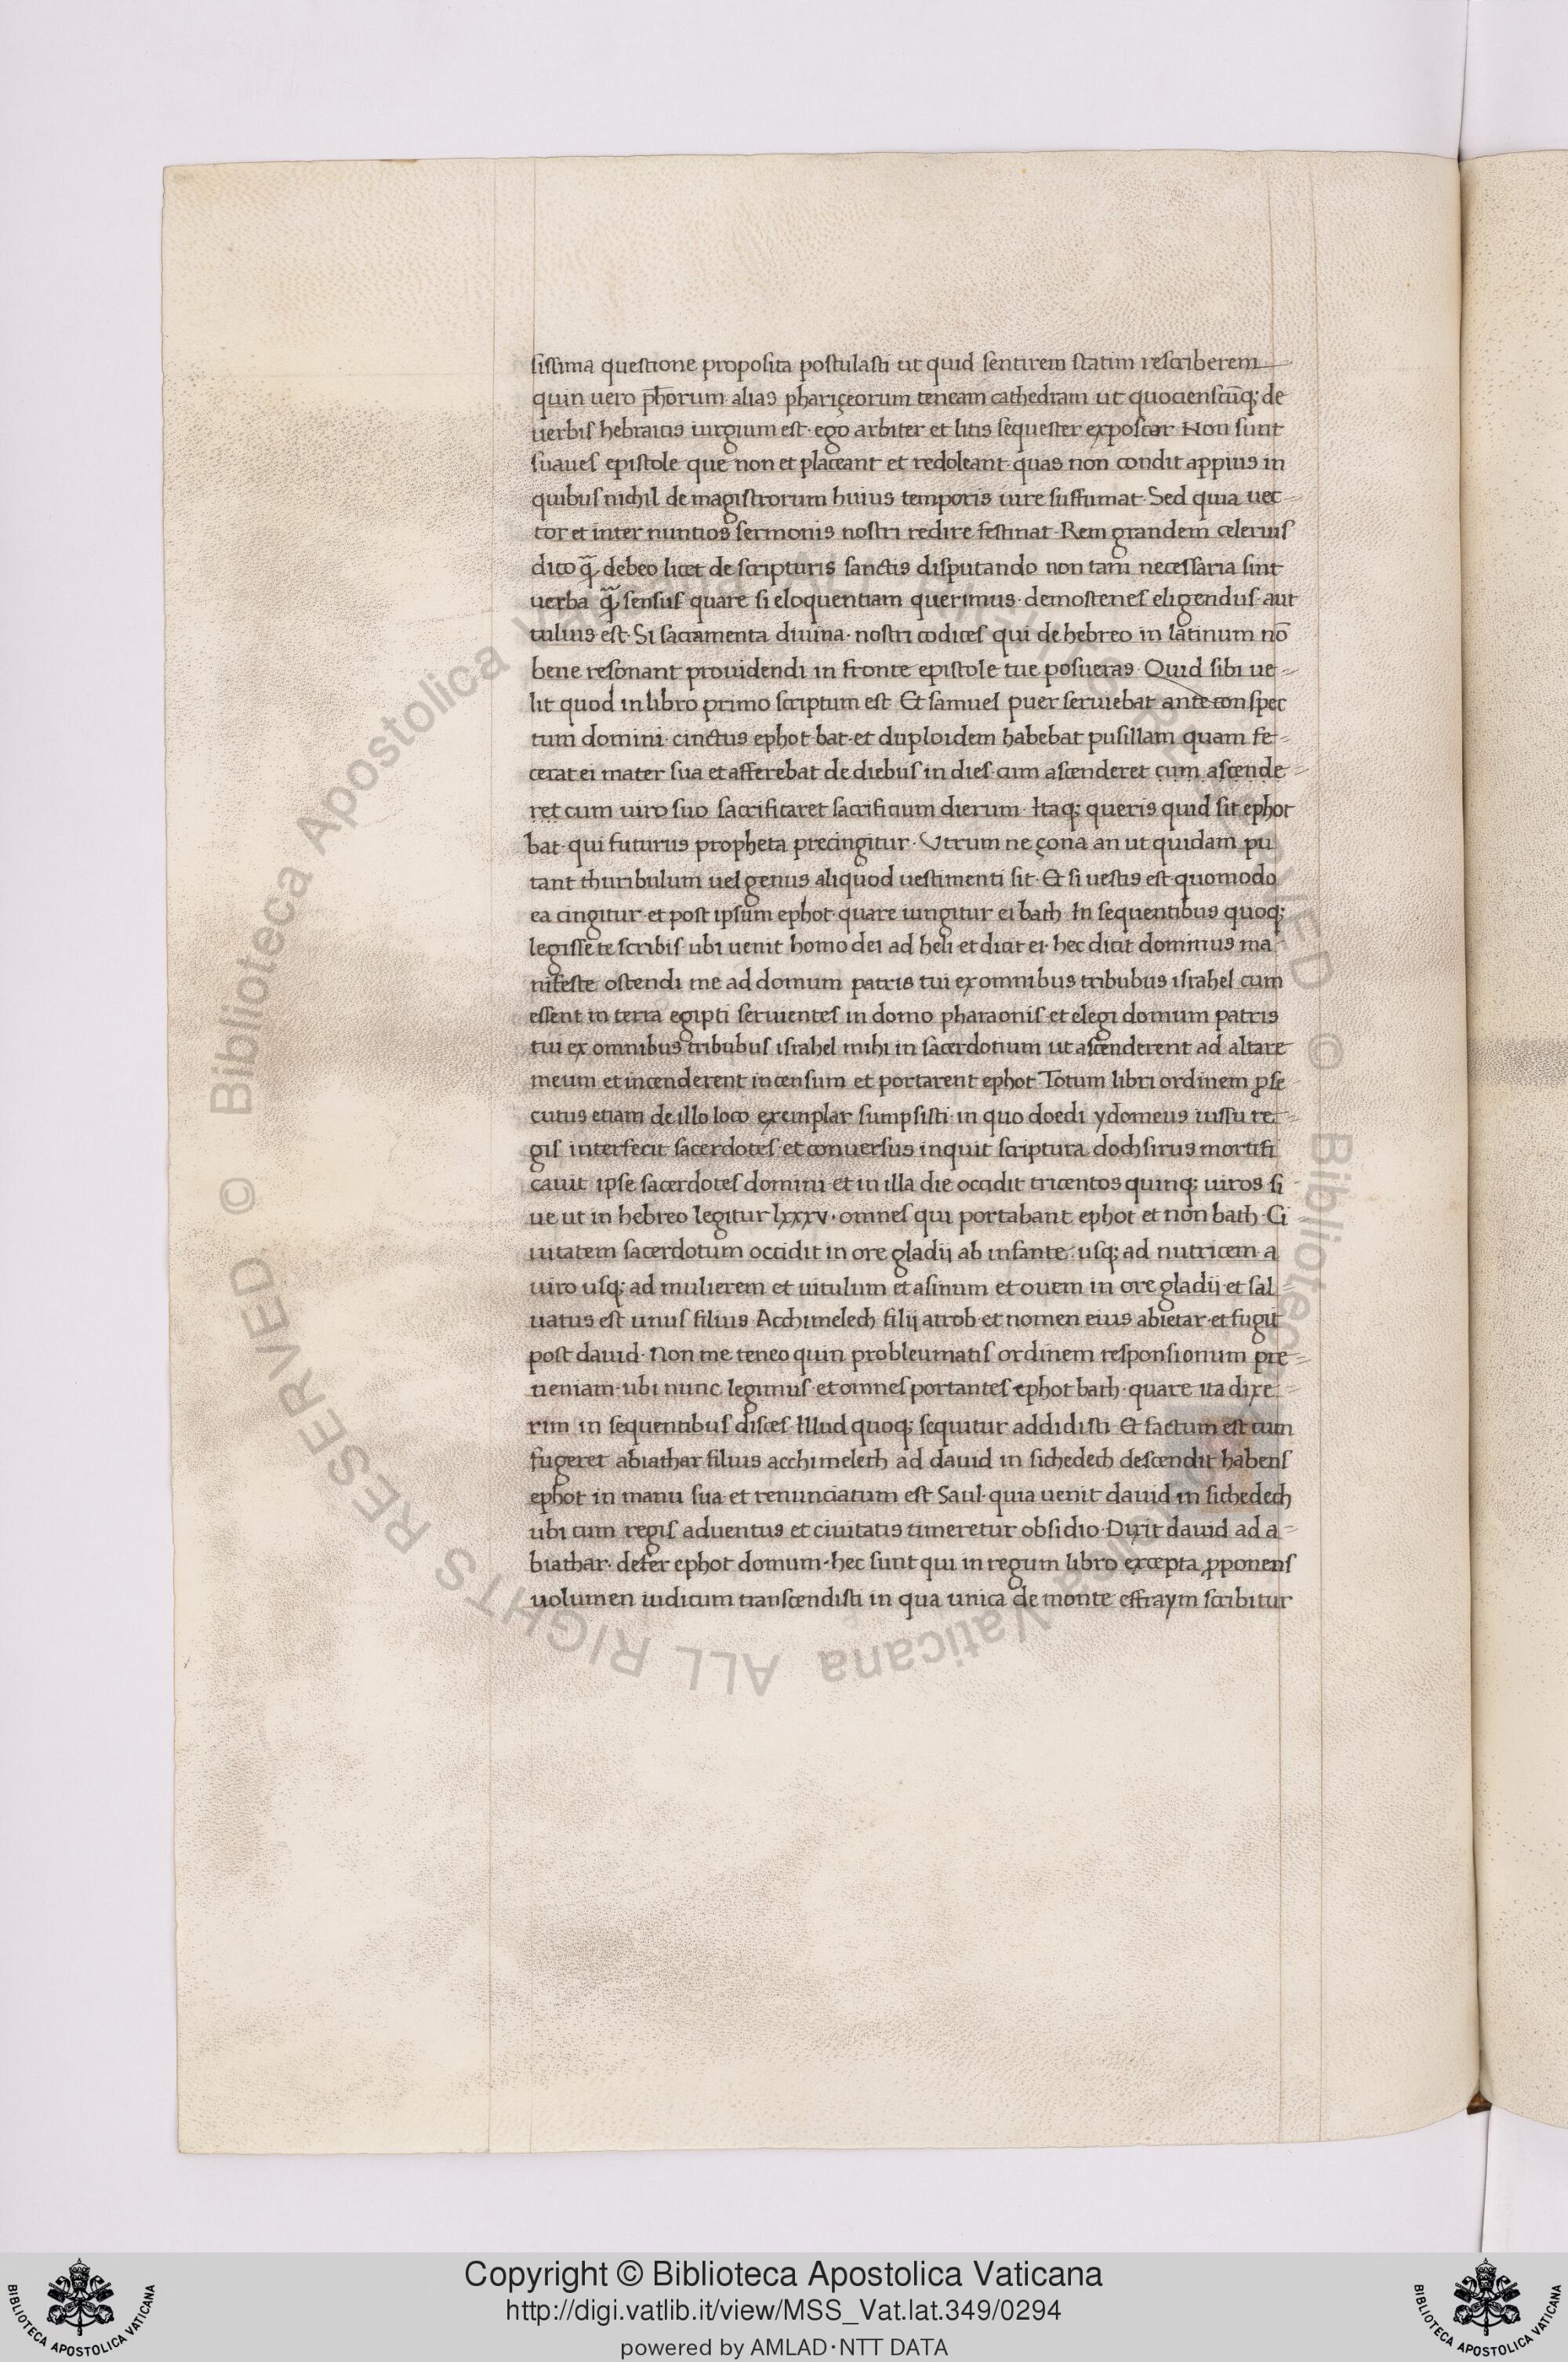 siſſima queſtione propoſita poſtulaſti ut quid ſentirem ſtatim reſcriberem
quin uero p̄horum alias phariçeorum teneam cathedram ut quocienſcūq; de
uerbiſ hebraicis iurgium eſt· ego arbiter et litis ſequeſter expoſcar Non ſunt
ſuaueſ epiſtole que non et placeant et redoleant quas non condit appius in
quibuſ nichil de magiſtrorum huius temporis iure ſuffumat· Sed quia uec
tor et inter nuntios ſermonis noſtri redire feſtinat· Rem grandem celeriuſ
dico q̄ debeo licet de ſcripturis ſanctis diſputando non tam neceſſaria ſint
uerba q̄ ſenſuſ quare ſi eloquentiam querimus· demoſteneſ eligenduſ aut
tulius eſt· Si ſacramenta diuina· noſtri codiceſ qui de hebreo in latinum nō
bene reſonant prouidendi in fronte epiſtole tue poſueras· Quid ſibi ue
lit quod in libro primo ſcriptum eſt Et ſamuel puer ſeruiebat ante conſpec
tum domini· cinctus ephot bat· et duploidem habebat puſillam quam fe
cerat ei mater ſua et afferebat de diebuſ in dieſ· cum aſcenderet cum aſcende
ret cum uiro ſuo ſacrificaret ſacrificium dierum· Itaq; queris quid ſit ephot
bat· qui futurus propheta precingitur· Vtrum ne çona an ut quidam pu
tant thuribulum uel genus aliquod ueſtimenti ſit· Et ſi ueſtis eſt quomodo
ea cingitur et poſt ipſum ephot quare iungitur ei bath In ſequentibus quoq;
legiſſe te ſcribiſ ubi uenit homo dei ad heli et dicit ei· hec dicit dominus ma
nifeſte oſtendi me ad domum patris tui ex omnibus tribubus iſrahel cum
eſſent in terra egipti ſeruienteſ in domo pharaoniſ et elegi domum patris
tui ex omnibus tribubuſ iſrahel mihi in ſacerdotium ut aſcenderent ad altare
meum et incenderent incenſum et portarent ephot Totum libri ordinem ꝓſe
cutus etiam de illo loco exemplar ſumpſiſti in quo doedi ydomeus iuſſu re
giſ interfecit ſacerdoteſ et conuerſus inquit ſcriptura doch ſirus mortifi
cauit ipſe ſacerdoteſ domini et in illa die occidit tricentos quinq; uiros ſi
ue ut in hebreo legitur lxxxv· omneſ qui portabant ephot et non bath· Ci
uitatem ſacerdotum occidit in ore gladij ab infante uſq; ad nutricem a
uiro uſq; ad mulierem et uitulum et aſinum et ouem in ore gladij et ſal
uatus eſt unuſ filius Acchimelech filij atrob et nomen eius abietar et fugit
poſt dauid· Non me teneo quin probleumatiſ ordinem reſponſionum pre
ueniam· ubi nunc legimuſ et omneſ portanteſ ephot bath· quare ita dixe
rim in ſequentibuſ diſceſ· Illud quoq; ſequitur addidiſti Et factum eſt cum
fugeret abiathar filius acchimelech ad dauid in ſichedech deſcendit habenſ
ephot in manu ſua et renunciatum eſt Saul quia uenit dauid in ſichedech
ubi cum regiſ aduentus et ciuitatis timeretur obſidio Dixit dauid ad a
biathar· defer ephot domum· hec ſunt qui in regum libro excepta ꝓponenſ
uolumen iudicum tranſcendiſti in qua unica de monte effraym ſcribitur
© Biblioteca Apostolica Vaticana ALL RIGHTS RESERVED
© Biblioteca Apostolica Vaticana ALL RIGHTS RESERVED
Copyright © Biblioteca Apostolica Vaticana
http://digi.vatlib.it/view/MSS_Vat.lat.349/0294
powered by AMLAD·NTT DATA
BIBLIOTECA APOSTOLICA VATICANA
BIBLIOTECA APOSTOLICA VATICANA